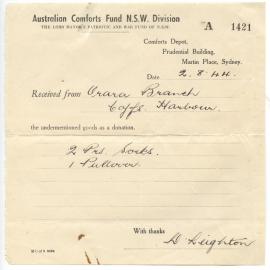 Australian Comforts Fund N.S.W. Division
THE LORD MAYOR'S PATRIOTIC AND WAR FUND OF N.S.W.
A 1421
Comforts Depot,
Prudential Building,
Martin Place, Sydney.
Date 2.8.44.
Received from Orara Branch
Coffs Harbour.
the undermentioned goods as a donation.
2 Prs. Socks.
1 Pullover
With thanks
D. Leighton